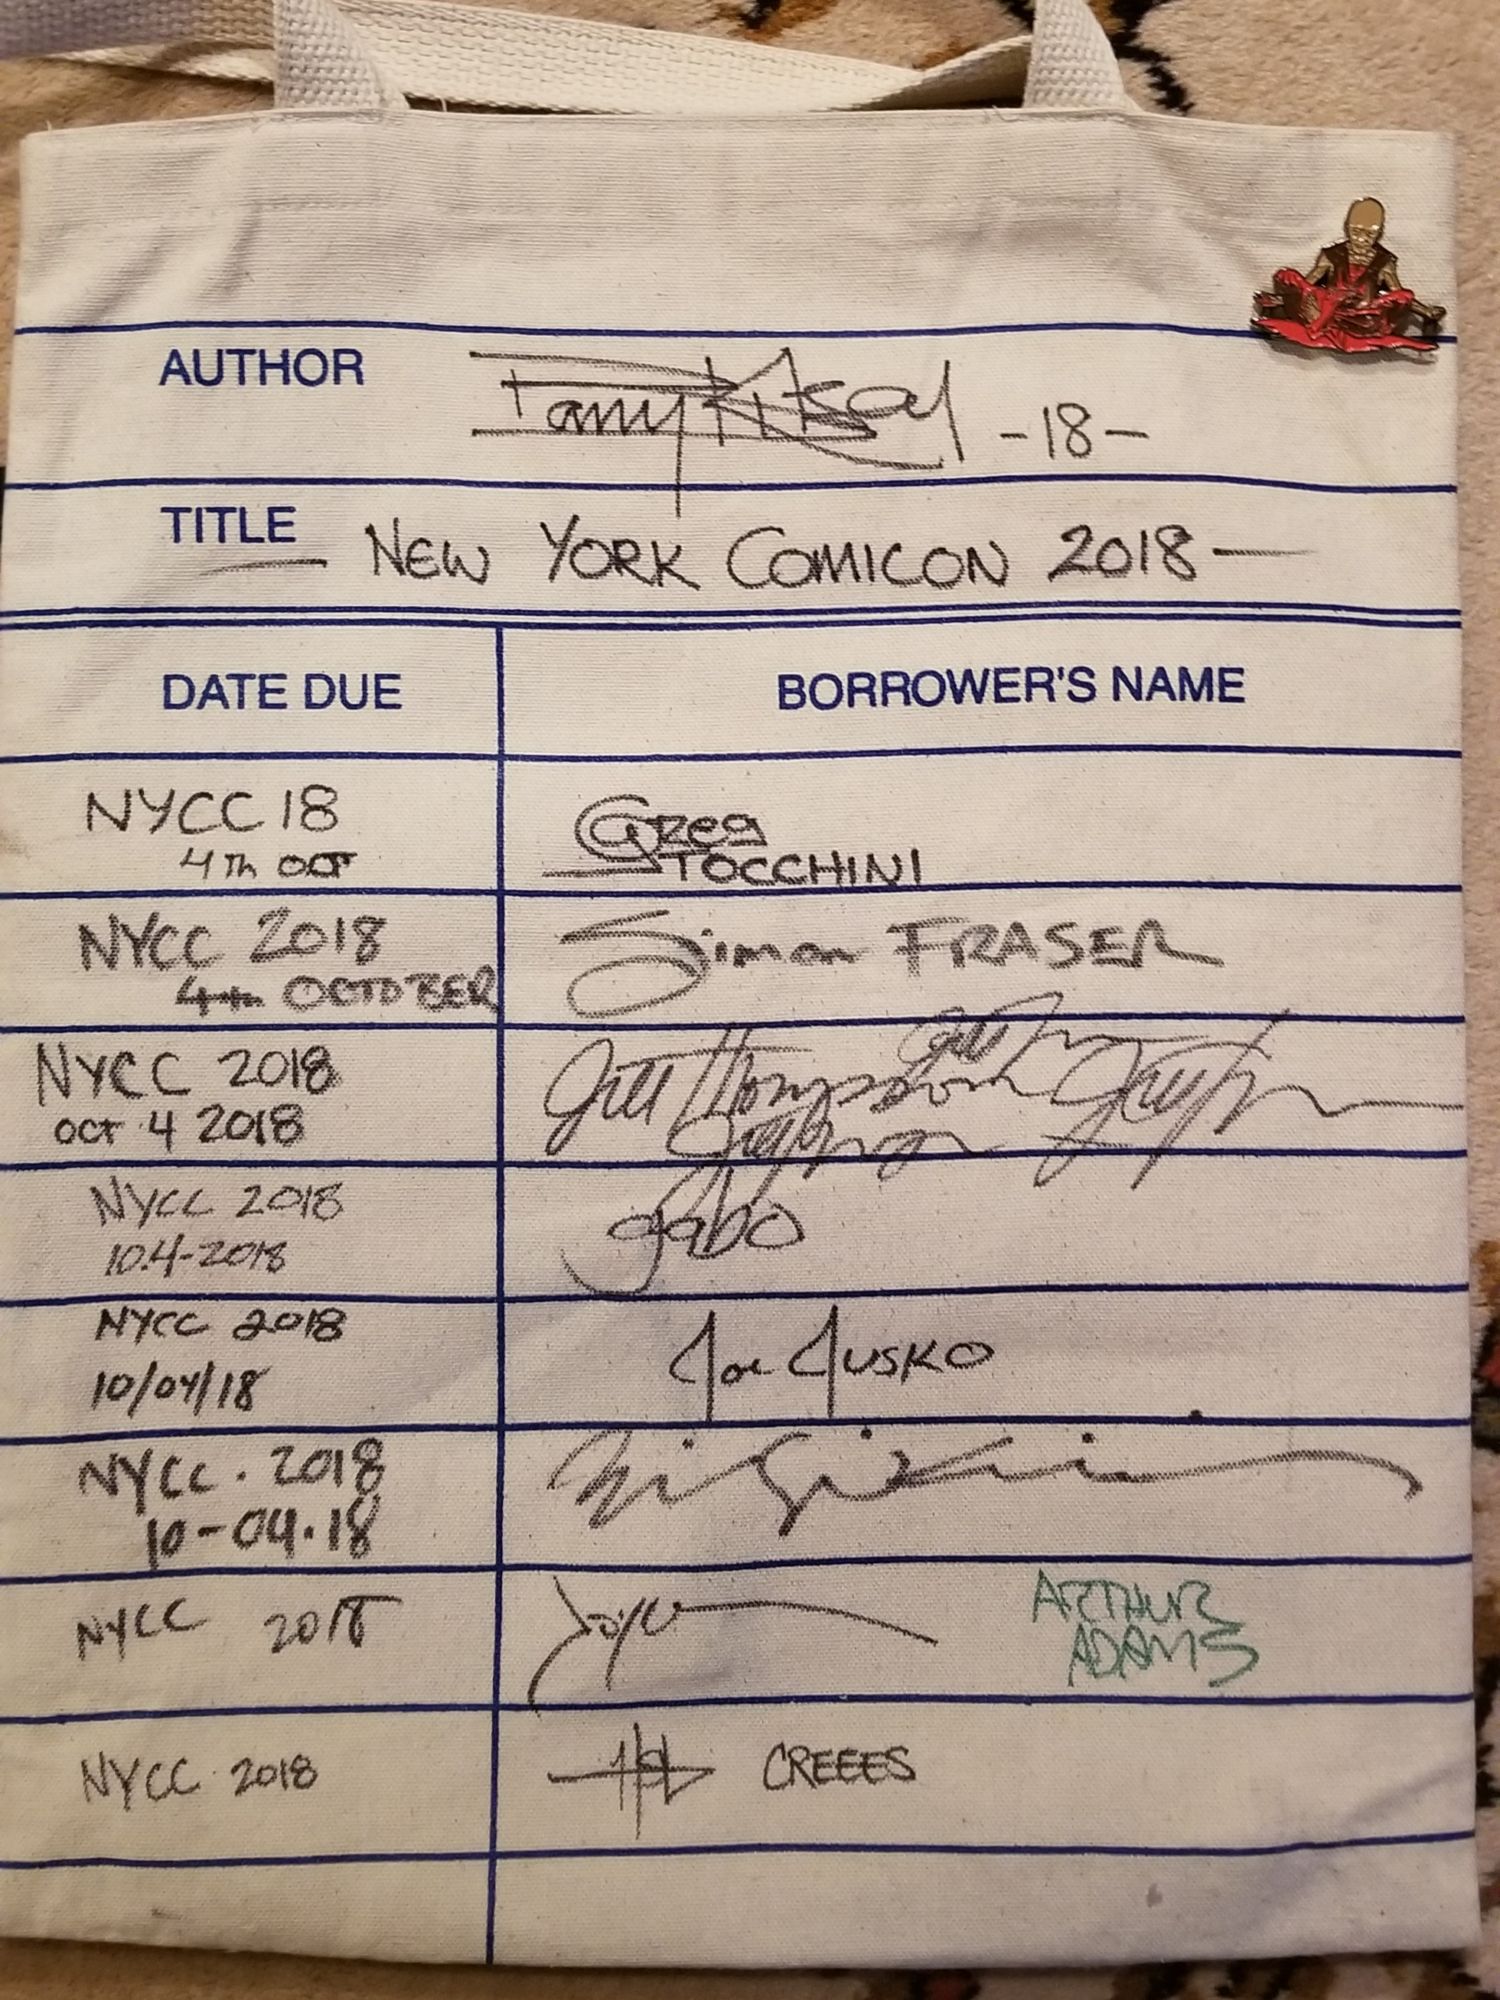 AUTHOR
-18-
TITLE NEW YORK COMICON 2018
DATE DUE BORROWER'S NAME
NYCC 18
4TH OCT
GREG
TOCCHINI
NYCC 2018
4TH OCTOBER
Simon FRASER
NYCC 2018
OCT 4 2018
Jill Thompson
NYCC 2018
10.4-2018
gabo
NYCC 2018
10/04/18
Joe JUSKO
NYCC . 2018
10-04.18
NYCC 2018
Joyce
ARTHUR
ADAMS
NYCC 2018
CREEES